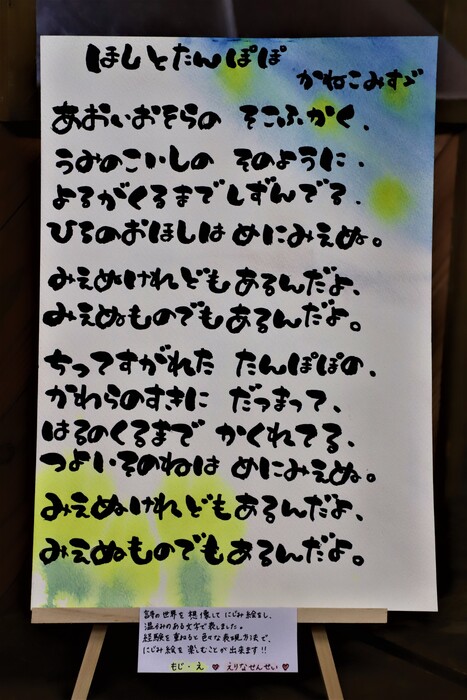 ほしとたんぽぽ
かねこみすゞ
あおいおそらの そこふかく、
うみのこいしの そのように、
よるがくるまでしずんでる、
ひるのおほしは めにみえぬ。
みえぬけれども あるんだよ、
みえぬものでもあるんだよ。
ちってすがれた たんぽぽの、
かわらのすきに だァまって、
はるのくるまで かくれてる、
つよいそのねは めにみえぬ。
みえぬけれどもあるんだよ、
みえぬものでもあるんだよ。
の世界を想像して にじみ絵をし、
温かみのある文字で表しました。
経験を重ねると色々な表現方法で、
にじみ絵を楽しむことが出来ます!!
もじ・え ♥ えりなせんせい ♥